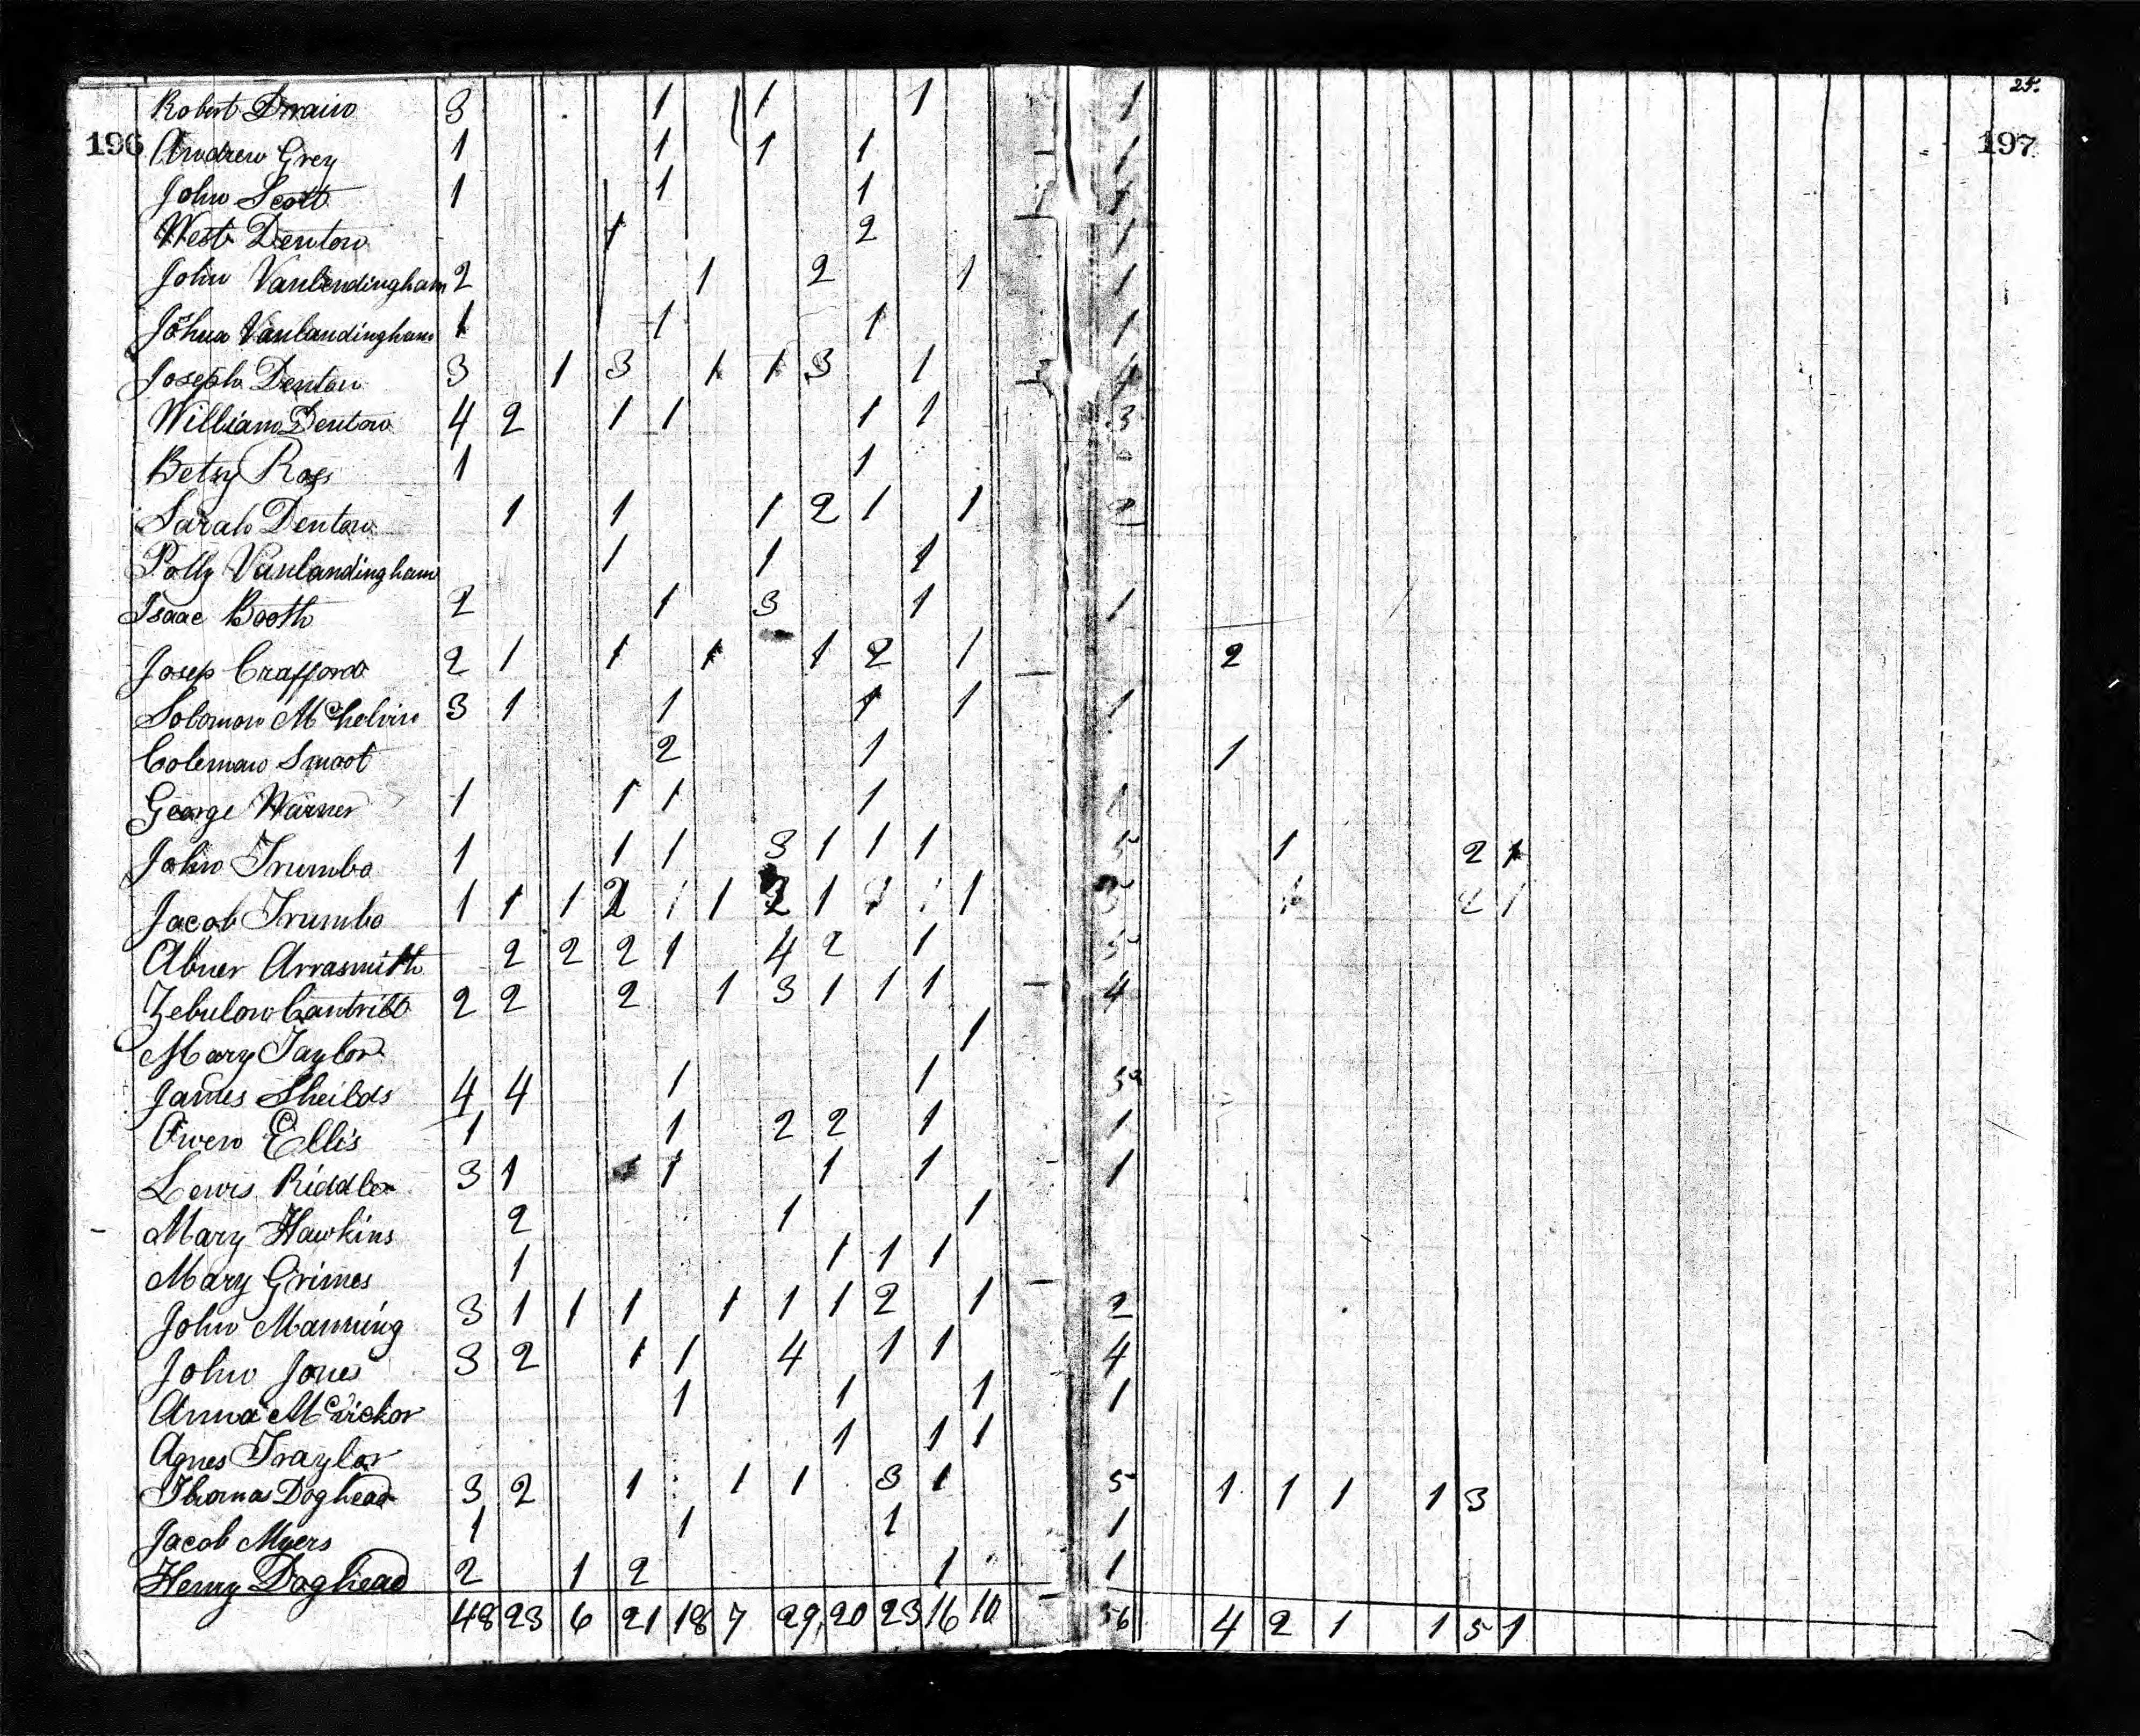 25.
196 197
Robert Drain 3 1 1 1 1
Andrew Grey 1 1 1 1 1
John Scott 1 1 1 1
West Denton 1 2 1
John Vanlendingham 2 1 2 1 1
Joshua Vanlandingham 1 1 1 1
Joseph Denton 3 1 3 1 1 3 1 4
William Denton 4 2 1 1 1 1 3
Betsy Ross 1 1 0
Sarah Denton 1 1 1 2 1 1 2
Polly Vanlandingham 1 1 1
Isaac Booth 2 1 3 1 1
Josep Crafford 2 1 1 1 1 2 1 2
Solomon McKelvin 3 1 1 1 1 1
Coleman Smoot 2 1 1
George Warner 1 1 1 1 1
John Trumbo 1 1 1 3 1 1 1 5 1 2 1
Jacob Trumbo 1 1 1 2 1 1 2 1 1 2 1
Abner Arrasmith 2 2 2 1 4 2 1 5
Zebulon Cantrill 2 2 2 1 3 1 1 1 4
Mary Taylor 1
James Sheilds 4 4 1 1 5
Owen Ellis 1 1 2 2 1 1
Lewis Riddle 3 1 1 1 1 1
Mary Hawkins 2 1 1
Mary Grimes 1 1 1 1
John Manning 3 1 1 1 1 1 1 2 1 2
John Jones 3 2 1 1 4 1 1 4
Anna McVickor 1 1 1 1
Agnes Traylor 1 1 1
Thomas Doghead 3 2 1 1 1 3 1 5 1 1 1 1 3
Jacob Myers 1 1 1 1
Henry Doghead 2 1 2 1 1
48 23 6 21 18 7 29 20 23 16 10 56 4 2 1 1 5 1